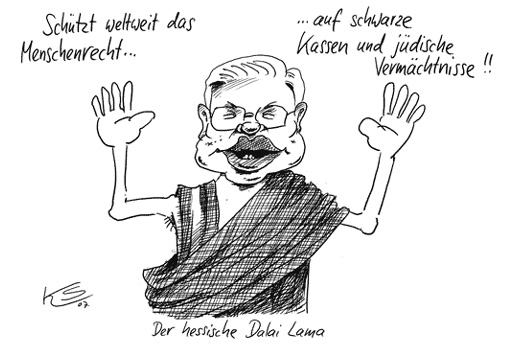 Schützt weltweit das
Menschenrecht...
...auf schwarze
Kassen und jüdische
Vermächtnisse!!
KS
07
Der hessische Dalai Lama